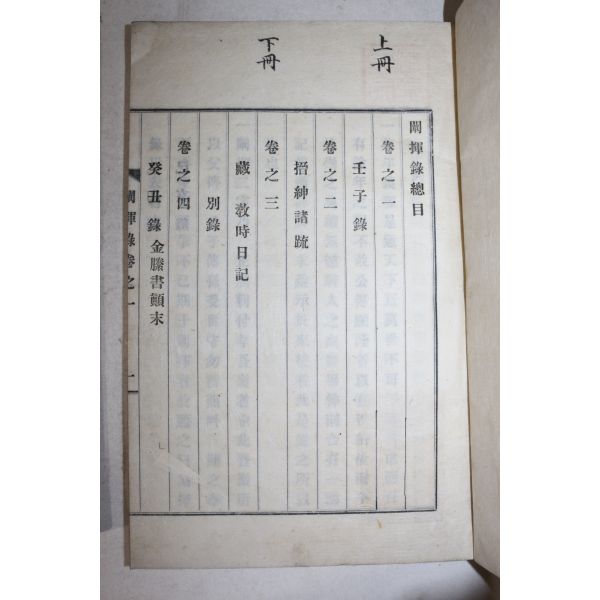 上冊
下冊
闡揮錄總目
卷之一
壬子錄
卷之二
搢紳諸䟽
卷之三
藏教時日記
別錄
卷之四
癸丑錄 金縢書顚末
闡揮錄卷之一 一